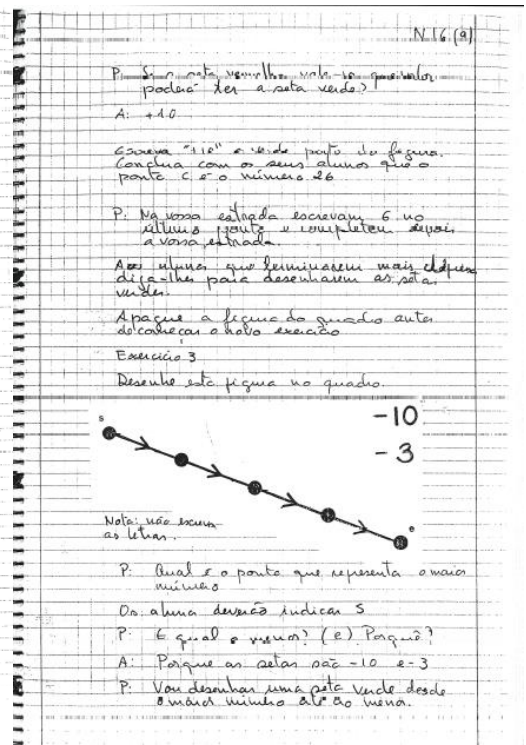 N 16 (a)
P: Se a seta vermelha vale -10 que valor
poderá ter a seta verde?
A: +10
Escreva "+10" a verde perto da figura.
Conclua com os seus alunos que o
ponto C é o número 26
P: Na vossa estrada escrevam 6 no
último ponto e completem depois
a vossa estrada.
Aos alunos que terminarem mais depressa
diga-lhes para desenharem as setas
verdes.
Apague a figura do quadro antes
de começar o novo exercício
Exercício 3
Desenhe esta figura no quadro.
-10
-3
s
e
Nota: não escreva
as letras.
P: Qual é o ponto que representa o maior
número
Os alunos deverão indicar S
P: E qual o menor? (e) Porquê?
A: Porque as setas são -10 e -3
P: Vou desenhar uma seta verde desde
o maior número até ao menor.